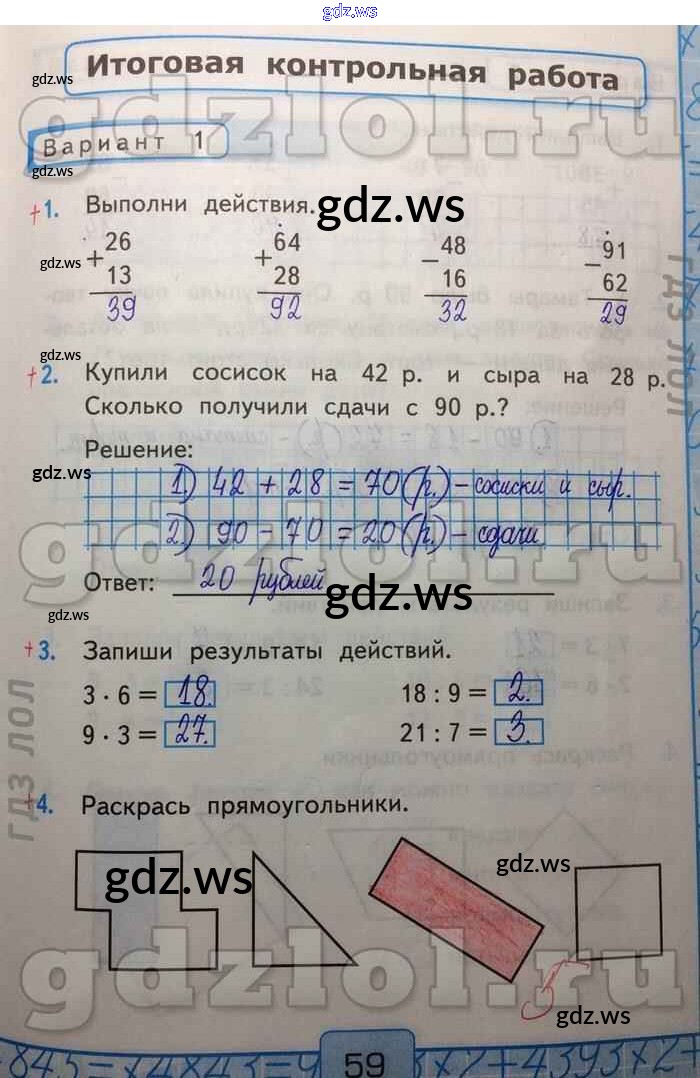 gdz.ws
Итоговая контрольная работа
gdz.ws
gdzlol.ru
Вариант 1
gdz.ws
+1. Выполни действия.
gdz.ws
+ 26 + 64 − 48 − 91
13 28 16 62
39 92 32 29
gdz.ws
гдз лол
gdz.ws
+2. Купили сосисок на 42 р. и сыра на 28 р.
Сколько получили сдачи с 90 р.?
Решение:
gdz.ws
1) 42 + 28 = 70 (р.) – сосиски и сыр.
2) 90 – 70 = 20 (р.) – сдачи.
gdzlol.ru
Ответ: 20 рублей
gdz.ws
gdz.ws
+3. Запиши результаты действий.
3 · 6 = 18. 18 : 9 = 2.
9 · 3 = 27. 21 : 7 = 3.
гдз лол
+4. Раскрась прямоугольники.
gdz.ws
gdz.ws
gdzlol.ru
5
gdz.ws
59